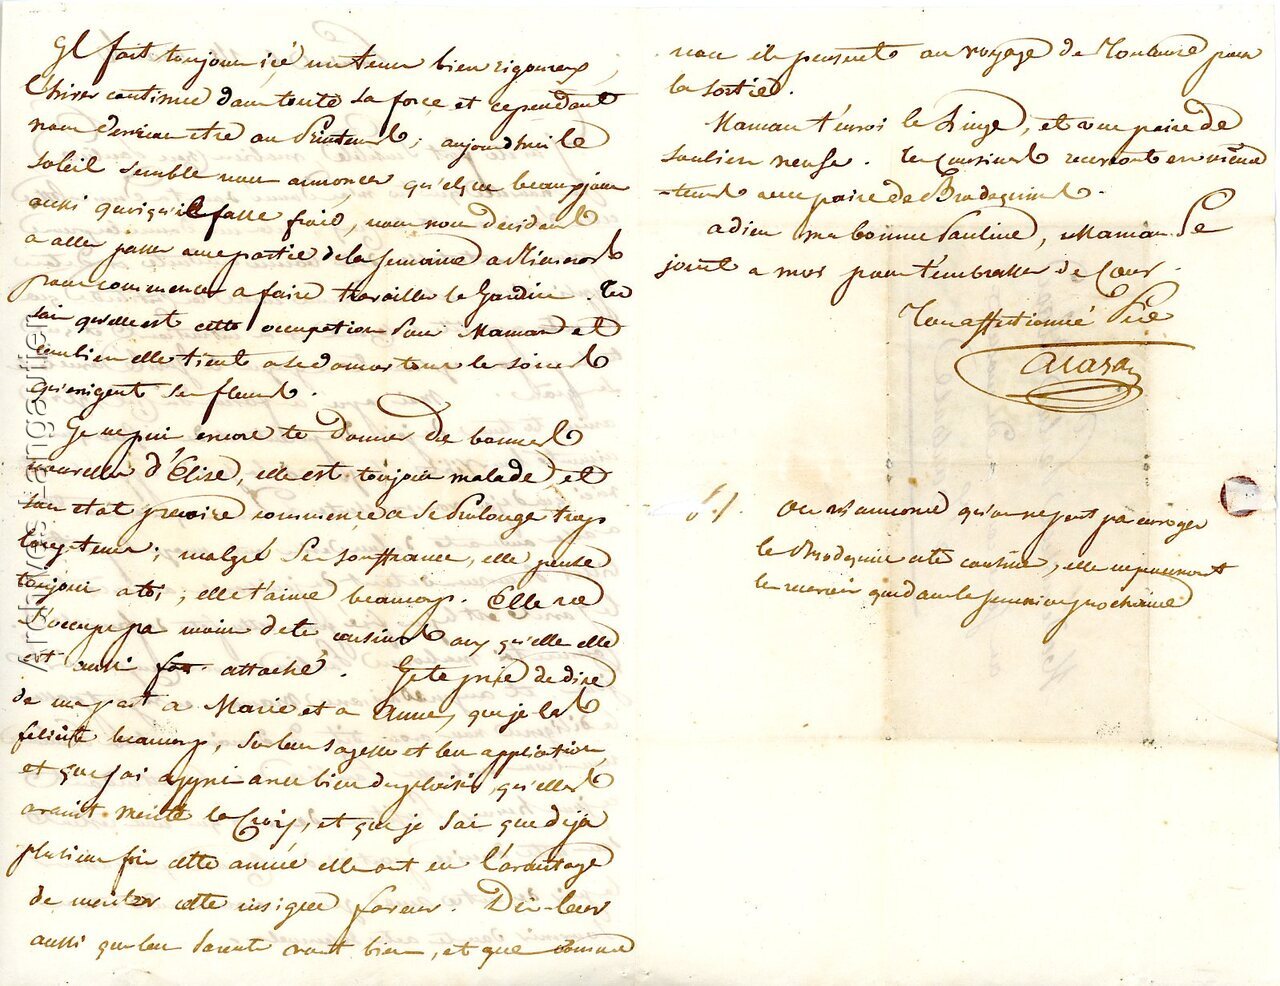 Il fait toujours ici un tems bien rigoureux,
l'hiver continue dans toute sa force et cependant
nous devrions etre au Printems; aujourdhui le
soleil semble nous annoncer quelque beaux jours
aussi quoiqu'il fasse froid, nous nous decidons
a aller passer une partie de la semaine a
pour commencer a faire travailler le Jardin. Tu
sais qu'elle est cette occupation pour Maman et
combien elle tient a se donner tous les soins
qu'exigent ses fleurs.
Je ne puis encore te donner de bonnes
nouvelles d'Élise, elle est toujours malade et
son état precaire commence a se prolonger trop
longtems; malgré ses souffrances, elle pense
toujours a toi; elle t'aime beaucoup. Elle ne
s'occupe pas moins de tes cousines aux qu'elle elle
est aussi fort attaché. Je te prie de dire
de ma part a Marie et a Anne, que je les
felicite beaucoup, sur leur sagesse et leur appliation,
et que j'ai appris avec bien du plaisir, qu'elles
avaint merité la Croix, et que je sai que deja
plusieurs fois cette année elle ont eu l'avantage
de meriter cette insigne faveur. Dis-leur
aussi que leurs Parents vont bien, et que comme
nous ils pensent au voyage de Toulouse pour
la sortie.
Maman t'envoi le linge, et une paire de
souliers neufs. Tes Cousines recevront en même
-tems une paire de Brodequins.
adieu ma bonne Pauline, Maman Se
joint a moi pour t'embrasser de Coeur.
Ton affectionné Père
P.S. On m'annonce qu'on ne peut pas envoyer
les Brodequins a tes cousines, elle ne pourront
les recevoir que dans la semaine prochaine
Archives Langautier